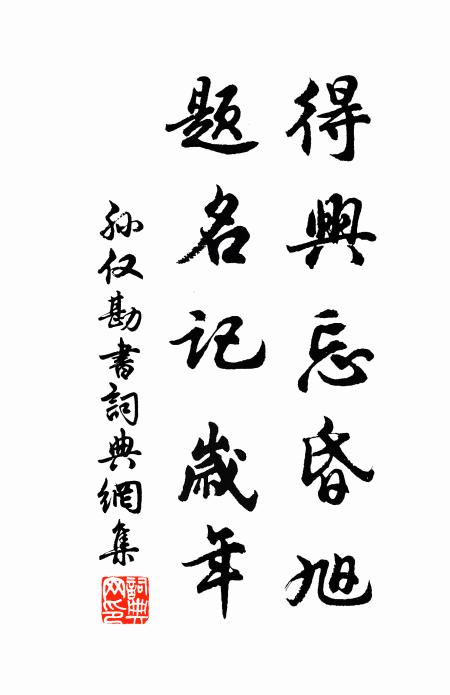 得興忘昏旭
題名記歲年
孫仅勘書詞典網集
詞典網印